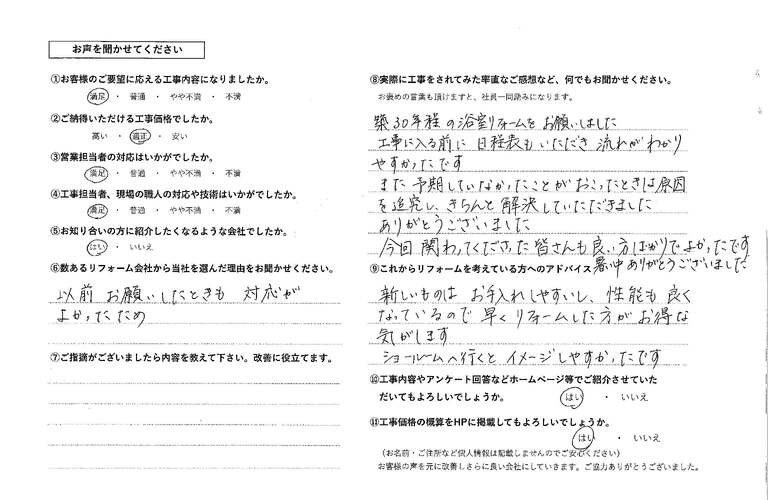 お声を聞かせてください
①お客様のご要望に応える工事内容になりましたか。
満足 ・ 普通 ・ やや不満 ・ 不満
②ご納得いただける工事価格でしたか。
高い ・ 適正 ・ 安い
③営業担当者の対応はいかがでしたか。
満足 ・ 普通 ・ やや不満 ・ 不満
④工事担当者、現場の職人の対応や技術はいかがでしたか。
満足 ・ 普通 ・ やや不満 ・ 不満
⑤お知り合いの方に紹介したくなるような会社でしたか。
はい ・ いいえ
⑥数あるリフォーム会社から当社を選んだ理由をお聞かせください。
以前 お願いしたときも 対応が
よかったため
⑦ご指摘がございましたら内容を教えて下さい。改善に役立てます。
⑧実際に工事をされてみた率直なご感想など、何でもお聞かせください。
お褒めの言葉も頂けますと、社員一同励みになります。
築30年程の浴室リフォームをお願いしました
工事に入る前に 日程表もいただき 流れがわかり
やすかったです
また 予期していなかったことがおこったときは原因
を追究し、きちんと解決していただきました
ありがとうございました
今回 関わってくださった皆さんも良い方ばかりでよかったです
暑い中 ありがとうございました
⑨これからリフォームを考えている方へのアドバイス
新しいものは お手入れしやすいし、性能も良く
なっているので 早くリフォームした方がお得な
気がします
ショールームへ行くと イメージしやすかったです
⑩工事内容やアンケート回答などホームページ等でご紹介させていた
だいてもよろしいでしょうか。 はい ・ いいえ
⑪工事価格の概算をHPに掲載してもよろしいでしょうか。
はい ・ いいえ
（お名前・ご住所など個人情報は記載しませんのでご安心ください）
お客様の声を元に改善しさらに良い会社にしていきます。ご協力ありがとうございました。